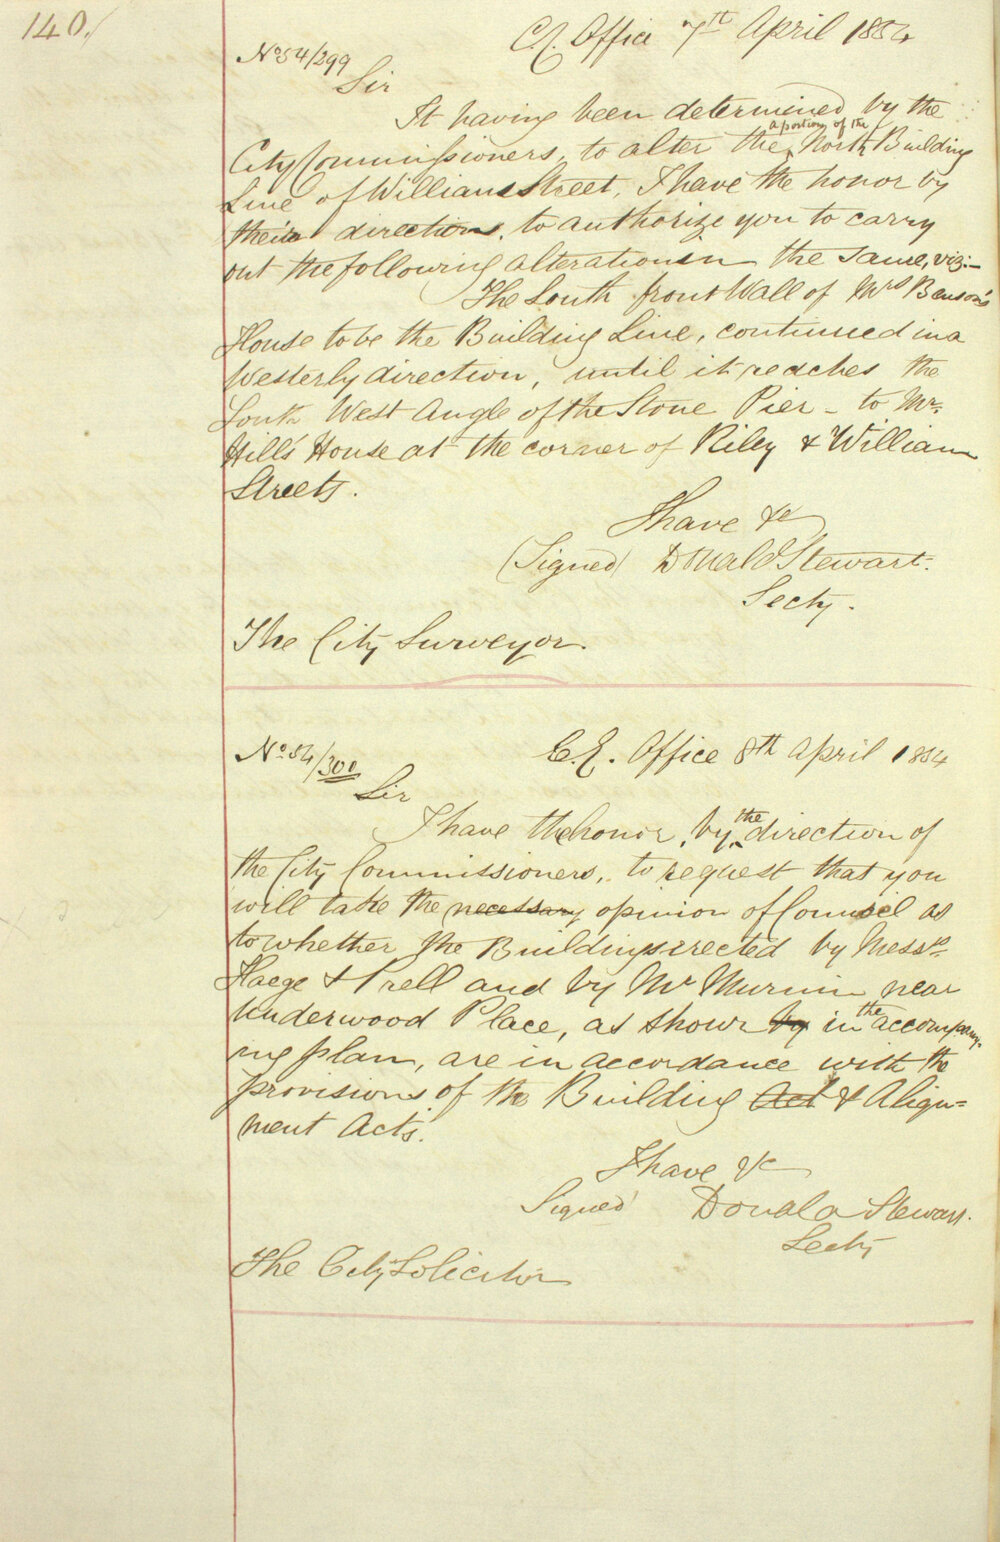 140./
C.C. Office 7th April 1854
No 54/299
Sir
It having been determined by the
City Commissioners, to alter the a portion of the North Building
Line of William Street, I have the honor by
their directions, to authorize you to carry
out the following alteration in the same, viz:-
The South front Wall of Mrs Benson's
House to be the Building Line, continued in a
Westerly direction, until it reaches the
South West Angle of the Stone Pier - to Mr.
Hill's House at the corner of Riley & William
Streets.
I have &c
(Signed) Donald Stewart.
Secty.
The City Surveyor.
No 54/300
C.C. Office 8th April 1854
Sir
I have the honor, by the direction of
the City Commissioners, to request that you
will take the necessary opinion of Council as
to whether the Buildings erected by Messrs
Haege & Prell and by Mr Murnin near
Underwood Place, as shown by in the accompany-
ing plan, are in accordance with the
provisions of the Building Act & Align=
ment Acts.
I have &c
Signed Donald Stewart.
Secty
The City Solicitor